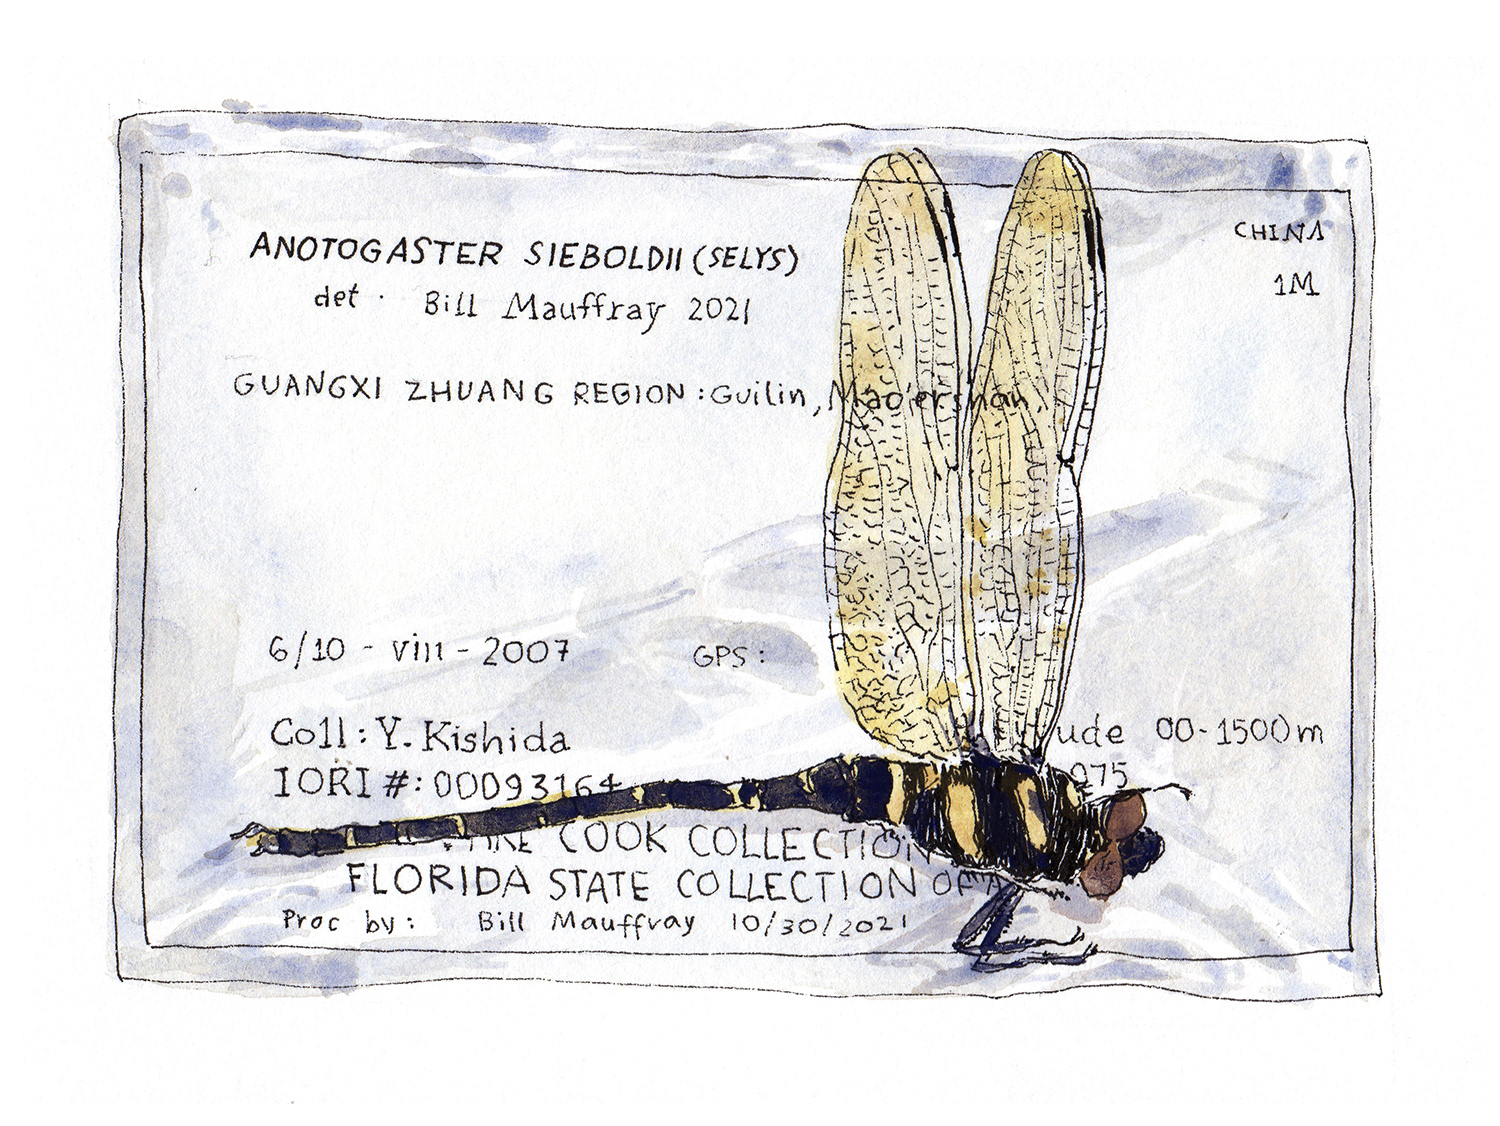 ANOTOGASTER SIEBOLDII (SELYS)
CHINA
det . Bill Mauffray 2021
1M
GUANGXI ZHUANG REGION : Guilin, Mao'ershan
6/10 - viii - 2007 GPS :
Coll : Y. Kishida ude 00-1500m
IORI #: 00093164 075
COOK COLLECTION
FLORIDA STATE COLLECTION OF A
Proc by : Bill Mauffray 10/30/2021